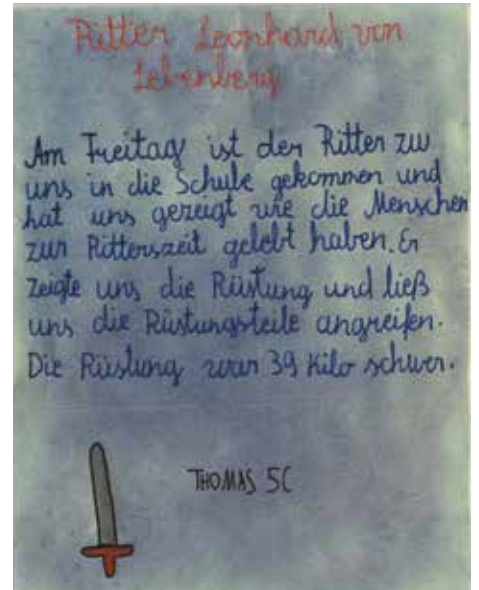 Ritter Leonhard von
Lebenberg
Am Freitag ist der Ritter zu
uns in die Schule gekommen und
hat uns gezeigt wie die Menschen
zur Ritterszeit gelebt haben. Er
zeigte uns die Rüstung und ließ
uns die Rüstungsteile angreifen.
Die Rüstung war 39 Kilo schwer.
THOMAS 5C